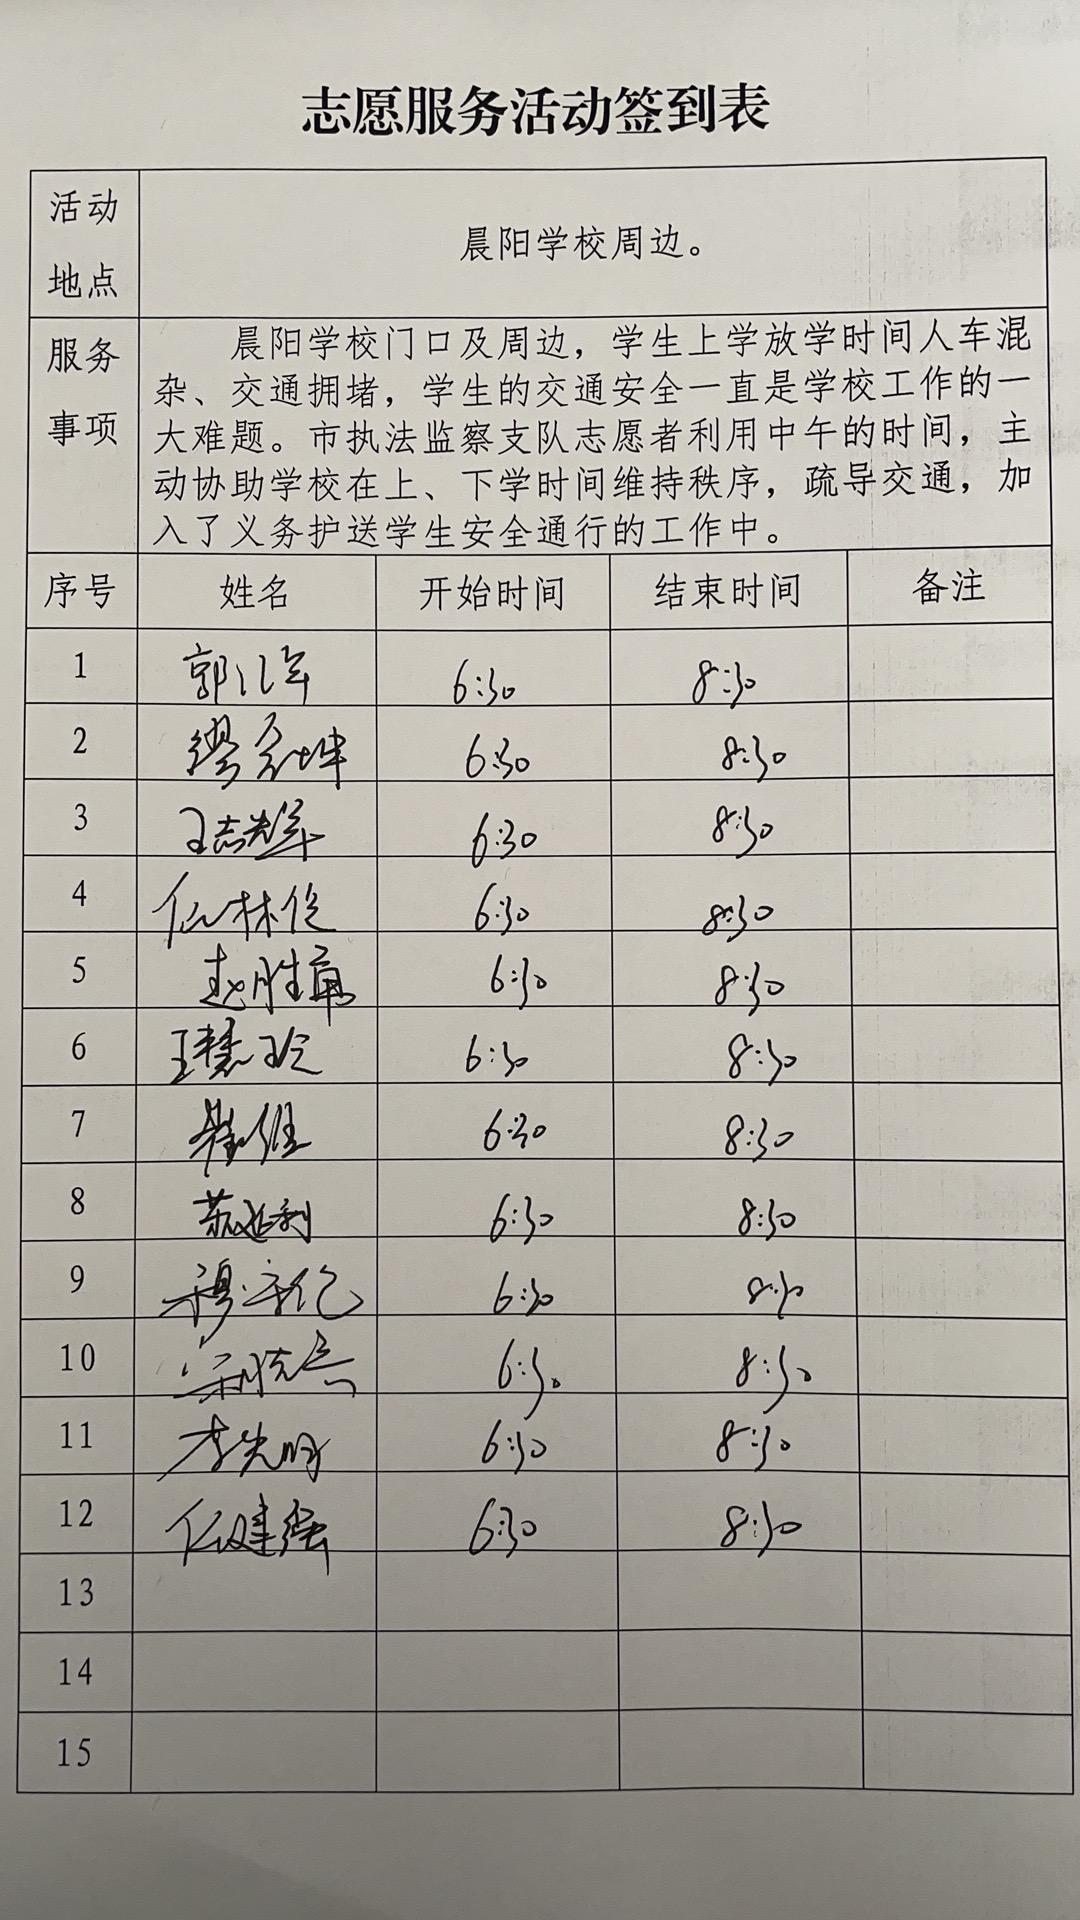 志愿服务活动签到表
活动
地点
晨阳学校周边。
服务
事项
晨阳学校门口及周边，学生上学放学时间人车混
杂、交通拥堵，学生的交通安全一直是学校工作的一
大难题。市执法监察支队志愿者利用中午的时间，主
动协助学校在上、下学时间维持秩序，疏导交通，加
入了义务护送学生安全通行的工作中。
序号 姓名 开始时间 结束时间 备注
1 郭 军 6:30 8:30
2 缪 坤 6:30 8:30
3 王志辉 6:30 8:30
4 仏林俊 6:30 8:30
5 赵胜 6:30 8:30
6 王慧玲 6:30 8:30
7 崔维 6:30 8:30
8 苏延利 6:30 8:30
9 穆 6:30 8:30
10 6:30 8:30
11 李光明 6:30 8:30
12 建强 6:30 8:30
13
14
15